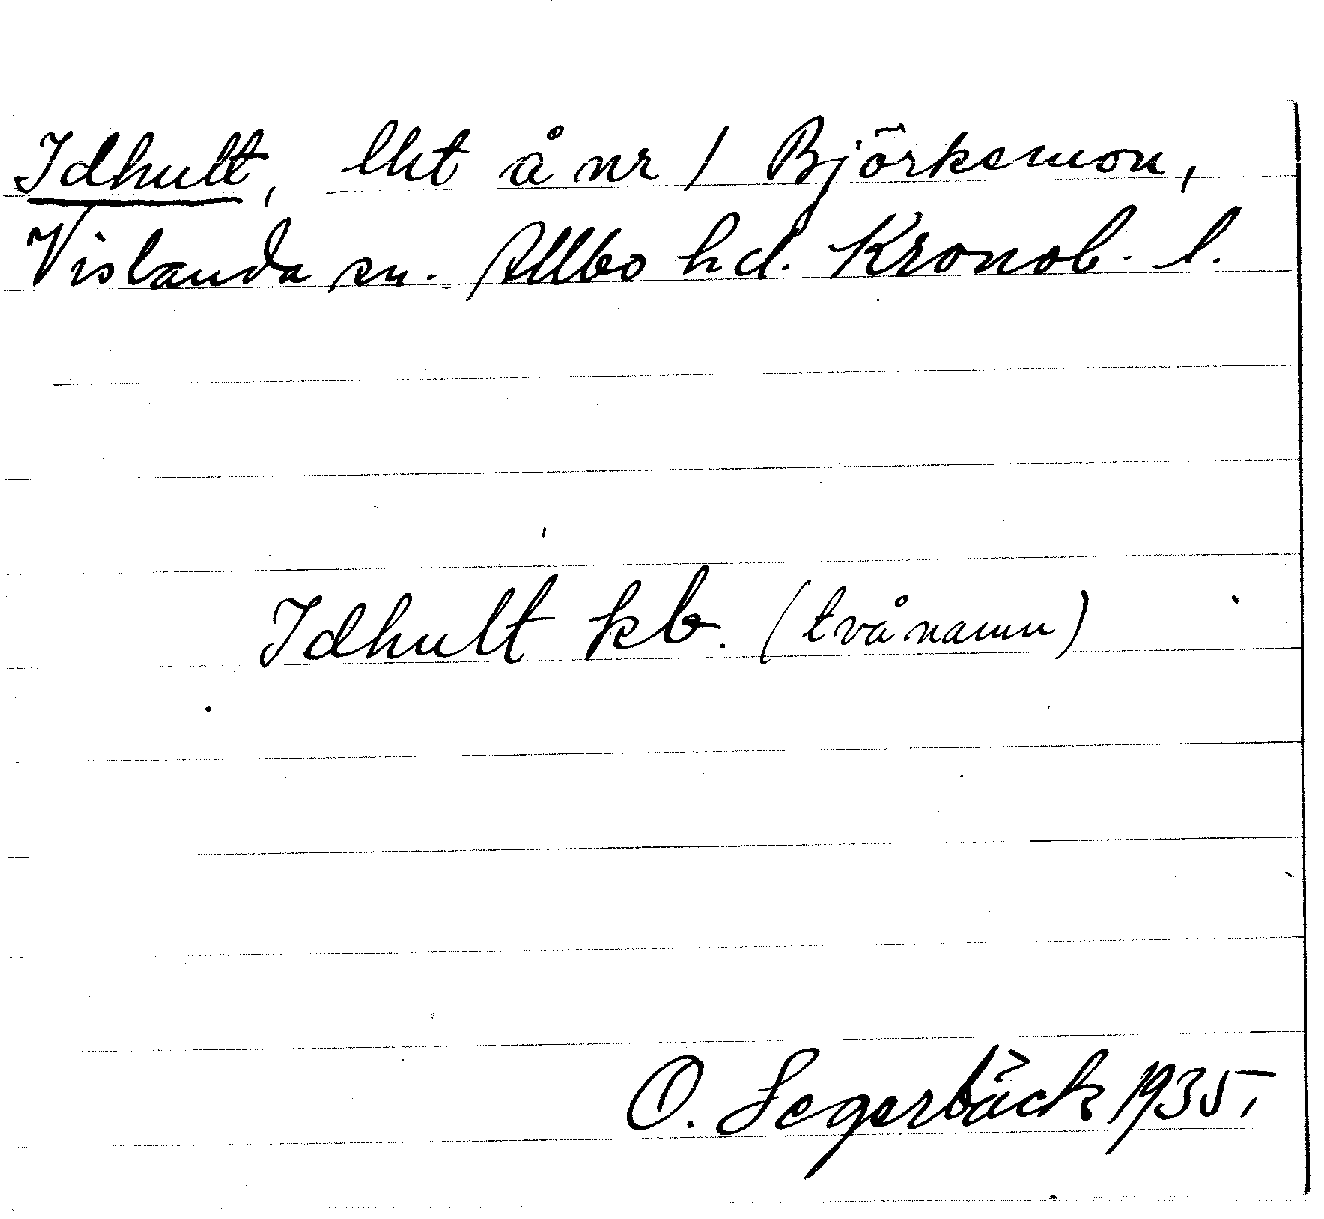 Idhult, lht å nr 1 Björkemon,
Vislanda sn. Allbo hd. Kronob. l.
Idhult kb. (två namn)
O. Segerbäck 1935.